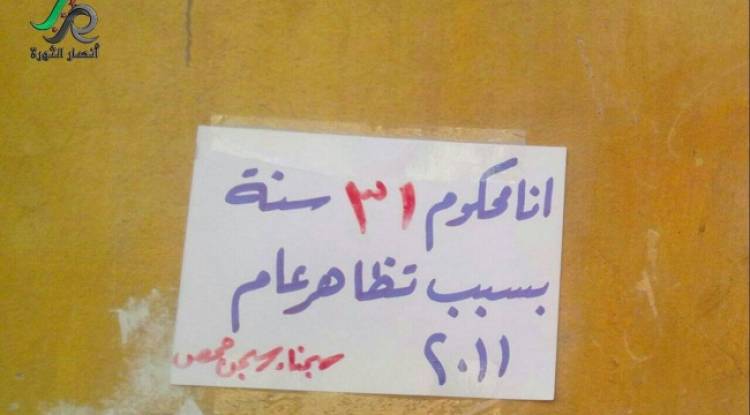 أنصار الثورة
انا محكوم ٣١ سنة
بسبب تظاهر عام
٢٠١١
سجناء سجن حمص